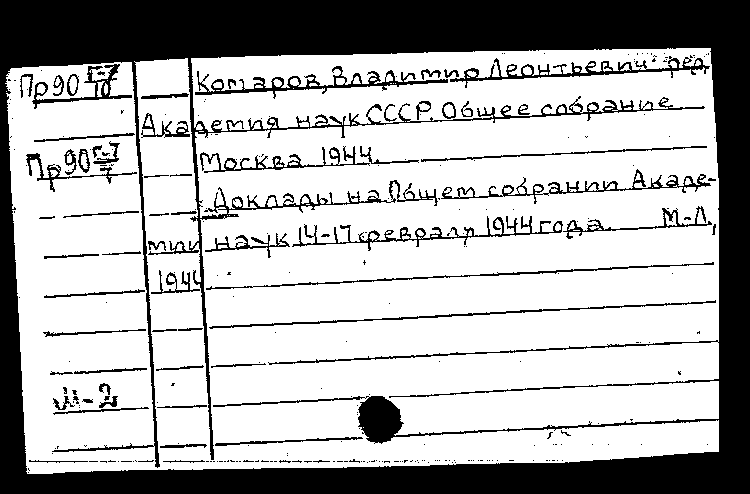 Пр90 Г-7/10 Комаров, Владимир Леонтьевич ред.
Академия наук СССР. Общее собрание
Пр90 Г-7/7 Москва 1944.
Доклады на Общем собрании Акаде-
мии наук 14-17 февраля 1944 года. М-Л,
1944
М-2